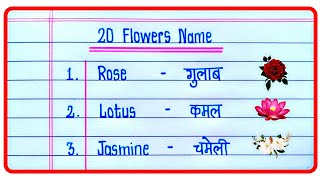 20 Flowers Name
1. Rose - गुलाब
2. Lotus - कमल
3. Jasmine - चमेली